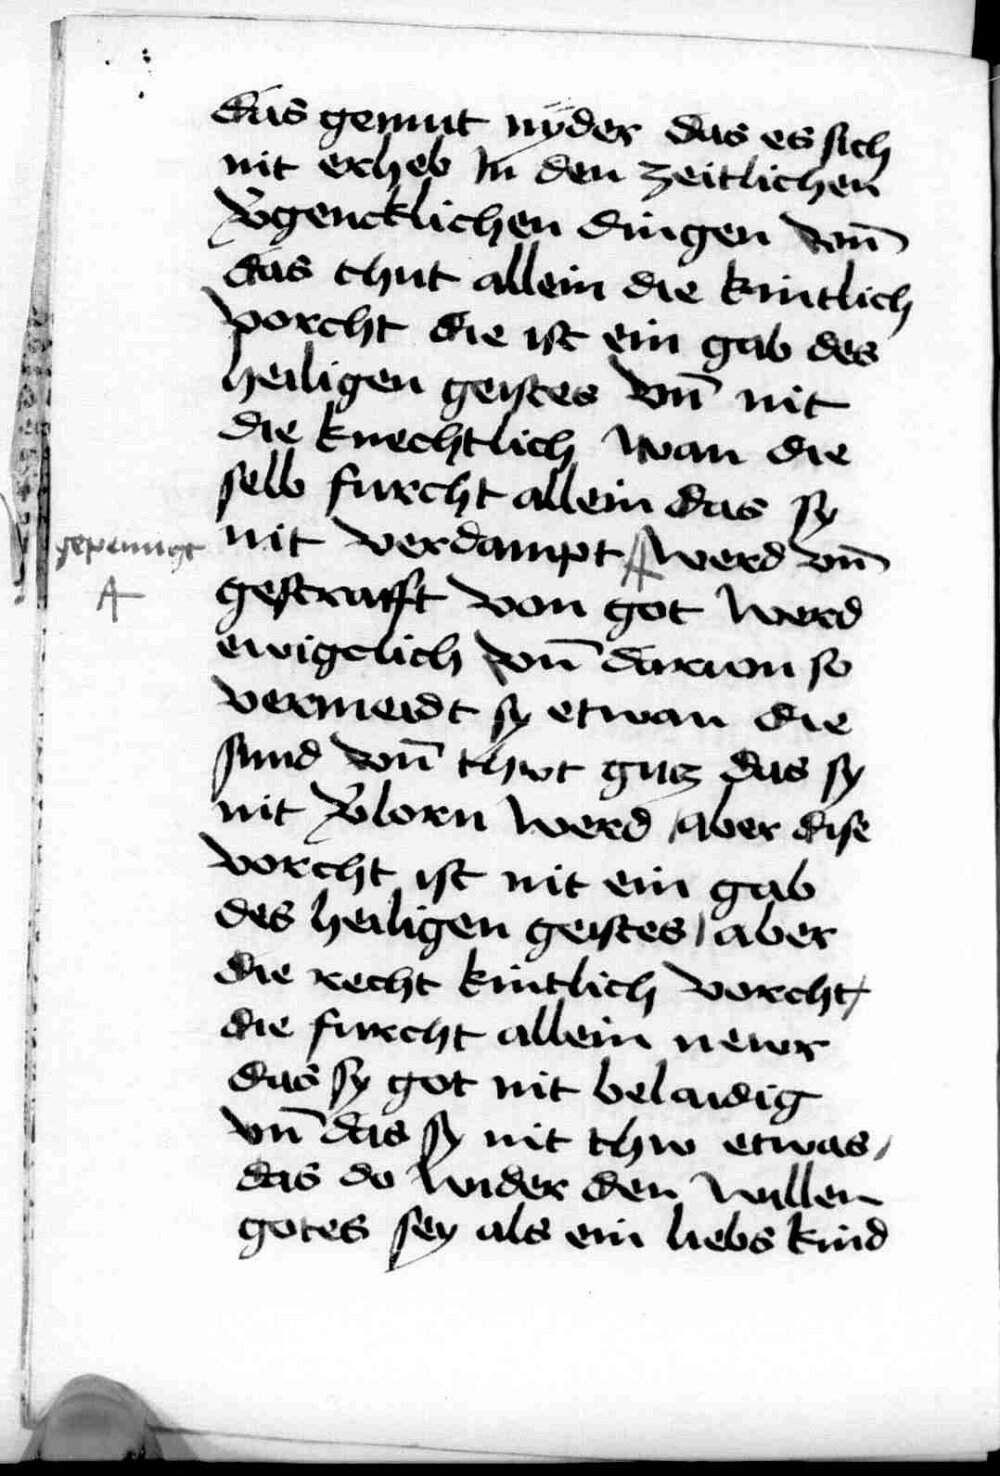 das gemut nyder das es sich
nit erheb In den zeitlichen
v̄gencklichen dingen vnd̄
das thut allein die kintlich
vorcht die ist ein gab des
heiligen geistes vn̄ nit
die knechtlich wan die
selb furcht allein das sy
nit verdampt werd vn̄
gepeinigt
A
gestrafft von got werd
ewigclich vn̄ darumb so
vermeidt sy etwan die
sund vn̄ thut gutz das sy
nit v̄lorn werd / aber dise
vorcht ist nit ein gab
des heiligen geistes / aber
die recht kintlich vorcht /
die furcht allein newr
das sy got nit belaidig
vn̄ das sy nit thw etwas /
das do wider den willen
gotes sey als ein liebs kind